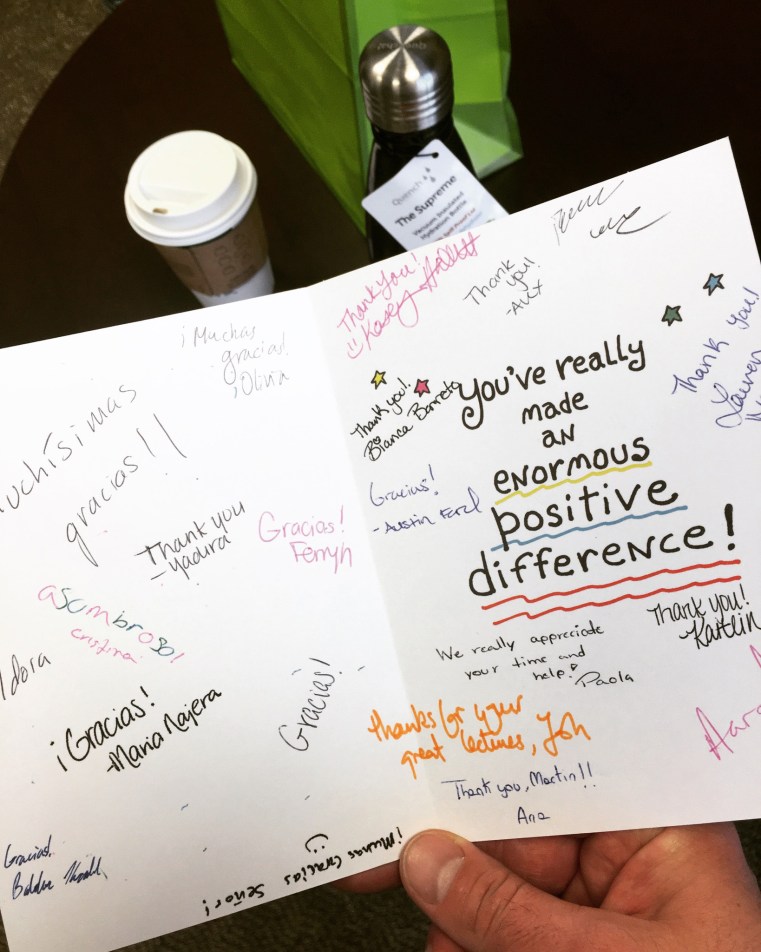 Quench
The Supreme
Vacuum Insulated
Hydration Bottle
¡Muchas
gracias!
Olivia
gracias!!
Thank you
-Yadira
Gracias!
asombroso!
cristina
¡Gracias!
-Maria Najera
Gracias!
Gracias!
Gracias Señor!
Thank you!
Kasey Hallett
Thank
you!
-Alix
Thank you!
Bianca Barreto
Thank you!
Lauren
You've really
made
an
enormous
positive
difference!
Gracias!
-Austin
Thank you!
-Kaitlin
We really appreciate
your time and
help!
Paola
thanks for your
great lectures,
Thank you, Martin!!
Ana